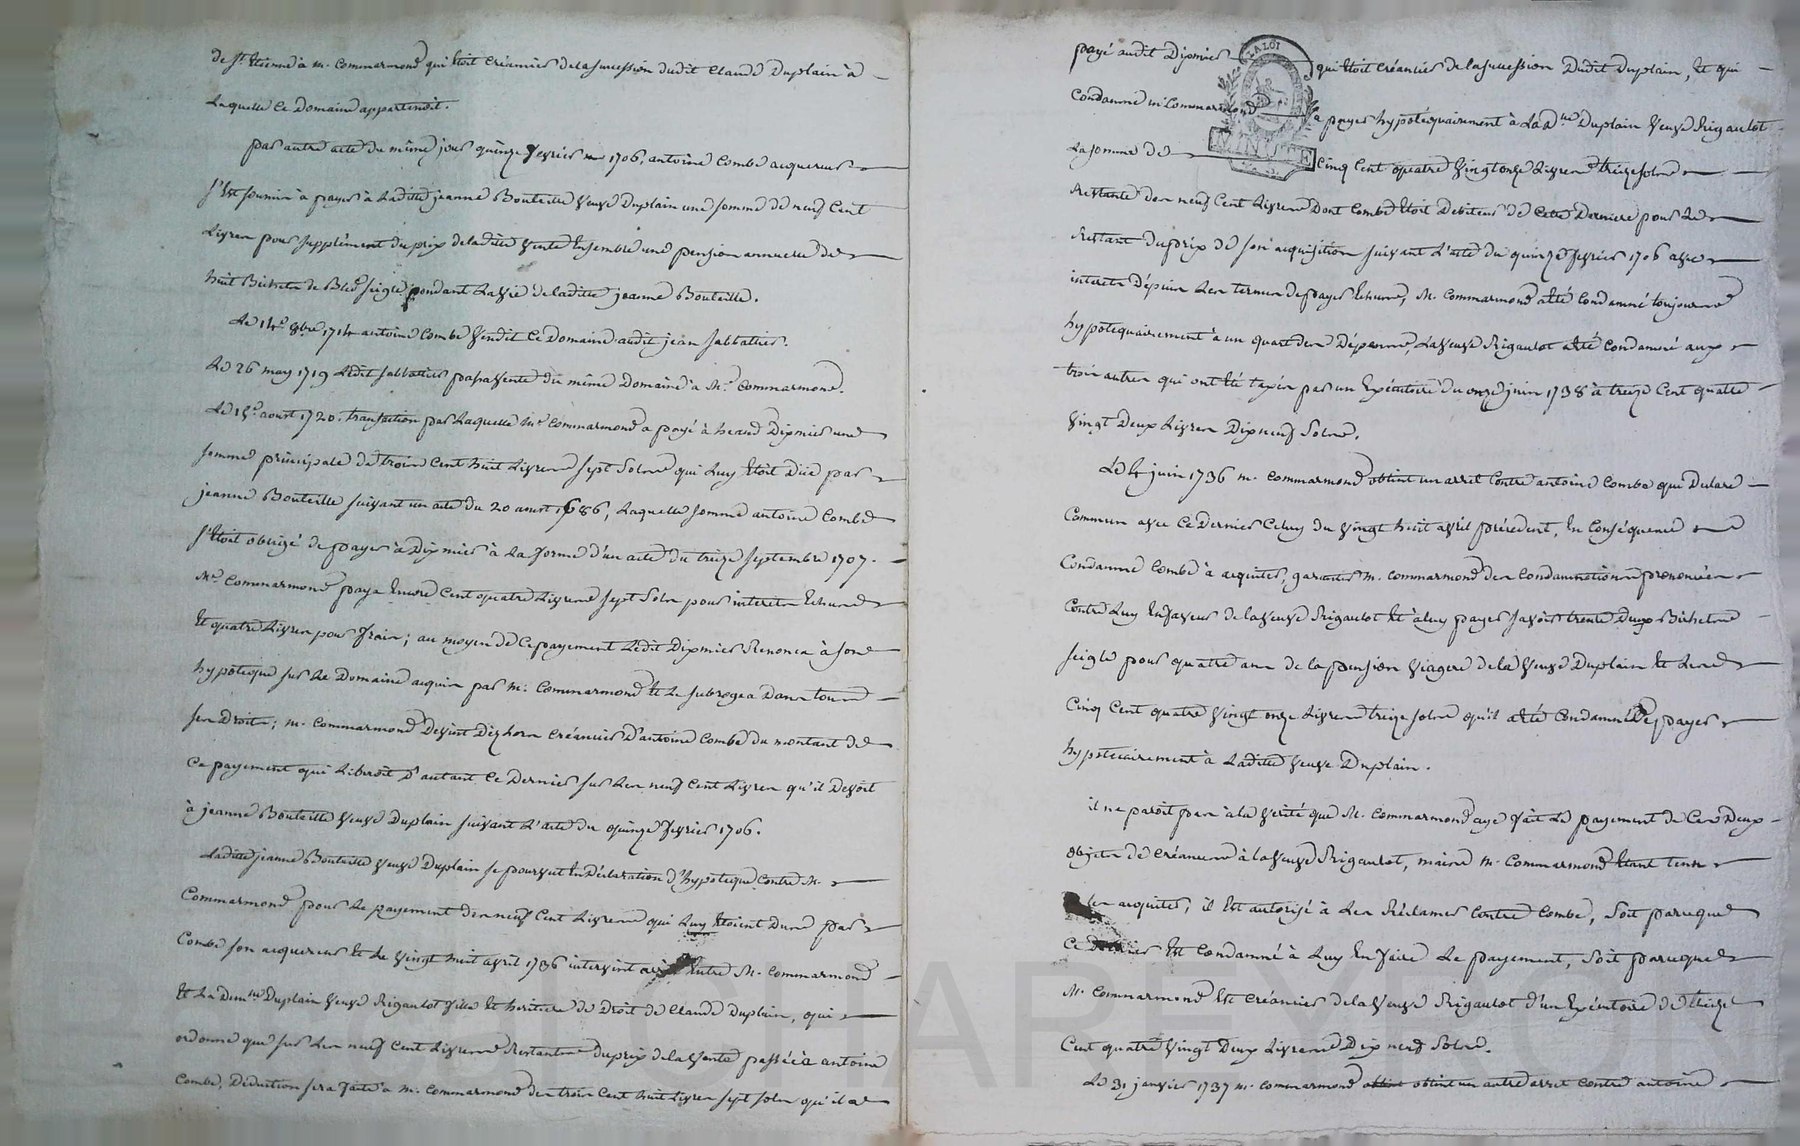 de St. Etienne à m. Commarmond qui étoit Créancier de la succession dudit Claude Duplain à
Laquelle Ce Domaine appartenoit.
par autre acte du même jour quinze fevrier 1706, antoine Combe acquereur
s'est soumis à payer à Ladite jeanne Bouteille veuve Duplain une somme de neuf Cent
Livres pour supplément du prix de ladite vente Ensemble une pension annuelle de
huit Bichets de Bled seigle pendant La vie de ladite jeanne Bouteille.
Le 14e. 8bre 1714 antoine Combe vendit Ce Domaine audit jean Sabbatier.
Le 26 may 1719 Ledit Sabbatier passa vente du même Domaine à Mr. Commarmond.
Le 15e. aoust 1720. transaction par Laquelle Mr. Commarmond a payé à Dixmier une
somme principale de trois Cent huit Livres sept Sols qui Luy étoit Düe par
jeanne Bouteille suivant un acte du 20 aoust 1686, Laquelle somme antoine Combe
s'étoit obligé de payer à Dixmier à La forme d'un acte du treize septembre 1707.
Mr. Commarmond paya Encore Cent quatre Livres sept Sols pour interets Echus
Et quatre Livres pour frais; au moyen de Ce payement Ledit Dixmier Renonca à son
hypoteque sur Le Domaine acquis par m. Commarmond Et Le subrogea Dans tous
ses Droits; m. Commarmond Devint Dez Lors Créancier D'antoine Combe du montant de
Ce payement qui Liberoit D'autant Ce Dernier sur Les neuf Cent Livres qu'il Devoit
à jeanne Bouteille veuve Duplain suivant L'acte du quinze fevrier 1706.
Ladite jeanne Bouteille veuve Duplain se pourvut En Déclaration d'hypoteque Contre M.
Commarmond pour Le payement des neuf Cent Livres qui Luy étoient Dues par
Combe son acquereur Et Le vingt huit avril 1736 intervint Entre M. Commarmond
Et La Demlle Duplain veuve Rigaulot fille Et heritiere de Droit de Claude Duplain, qui
ordonne que sur Les neuf Cent Livres Restantes du prix de la vente passée à antoine
Combe, Déduction sera faite à m. Commarmond des trois Cent huit Livres sept sols qu'il a
payé audit Dixmier qui étoit Créancier de la succession Dudit Duplain, Et qui
LA LOI
Condamne m. Commarmond à payer hypotéquairement à La Dlle Duplain veuve Rigaulot
MINUTE
La somme de Cinq Cent quatre vingt onze Livres treize sols
Restante des neuf Cent Livres Dont Combe étoit Debiteur de Cette Derniere pour Le
Restant du prix de son acquisition suivant L'acte du quinze fevrier 1706 avec
interets Depuis Les termes de payer Echus, M. Commarmond a été Condamné toujours
hypotequairement à un quart des Dépens, La veuve Rigaulot a été Condamné aux
trois autres qui ont été taxés par un Exécutoire du onze juin 1738 à treize Cent quatre
vingt Deux Livres Dix neuf Sols.
Le 4 juin 1736 m. Commarmond obtint un arret Contre antoine Combe qui Déclare
Commun avec Ce Dernier Celuy du vingt huit avril précedent, En Conséquence
Condamne Combe à acquiter, garantir m. Commarmond des Condamnations prononcées
Contre Luy En faveur de la veuve Rigaulot Et à luy payer savoir trente Deux Bichets
seigle pour quatre ans de la pension viagere de la veuve Duplain Et Les
Cinq Cent quatre vingt onze Livres treize sols qu'il a été Condamné De payer
hypotecairement à Ladite veuve Duplain.
il ne paroit pas à la verité que M. Commarmond aye fait Le payement de Ces Deux
objets de Créances à la veuve Rigaulot, mais m. Commarmond étant tenu
Les acquiter, il Est autorisé à Les Réclamer Contre Combe, Soit parceque
Ce Dernier Est Condamné à Luy En faire Le payement, Soit parceque
M. Commarmond Est Créancier de la veuve Rigaulot d'un Exécutoire de treize
Cent quatre vingt Deux Livres Dix neuf Sols.
Le 31 janvier 1737 m. Commarmond obtint un autre arret Contre antoine